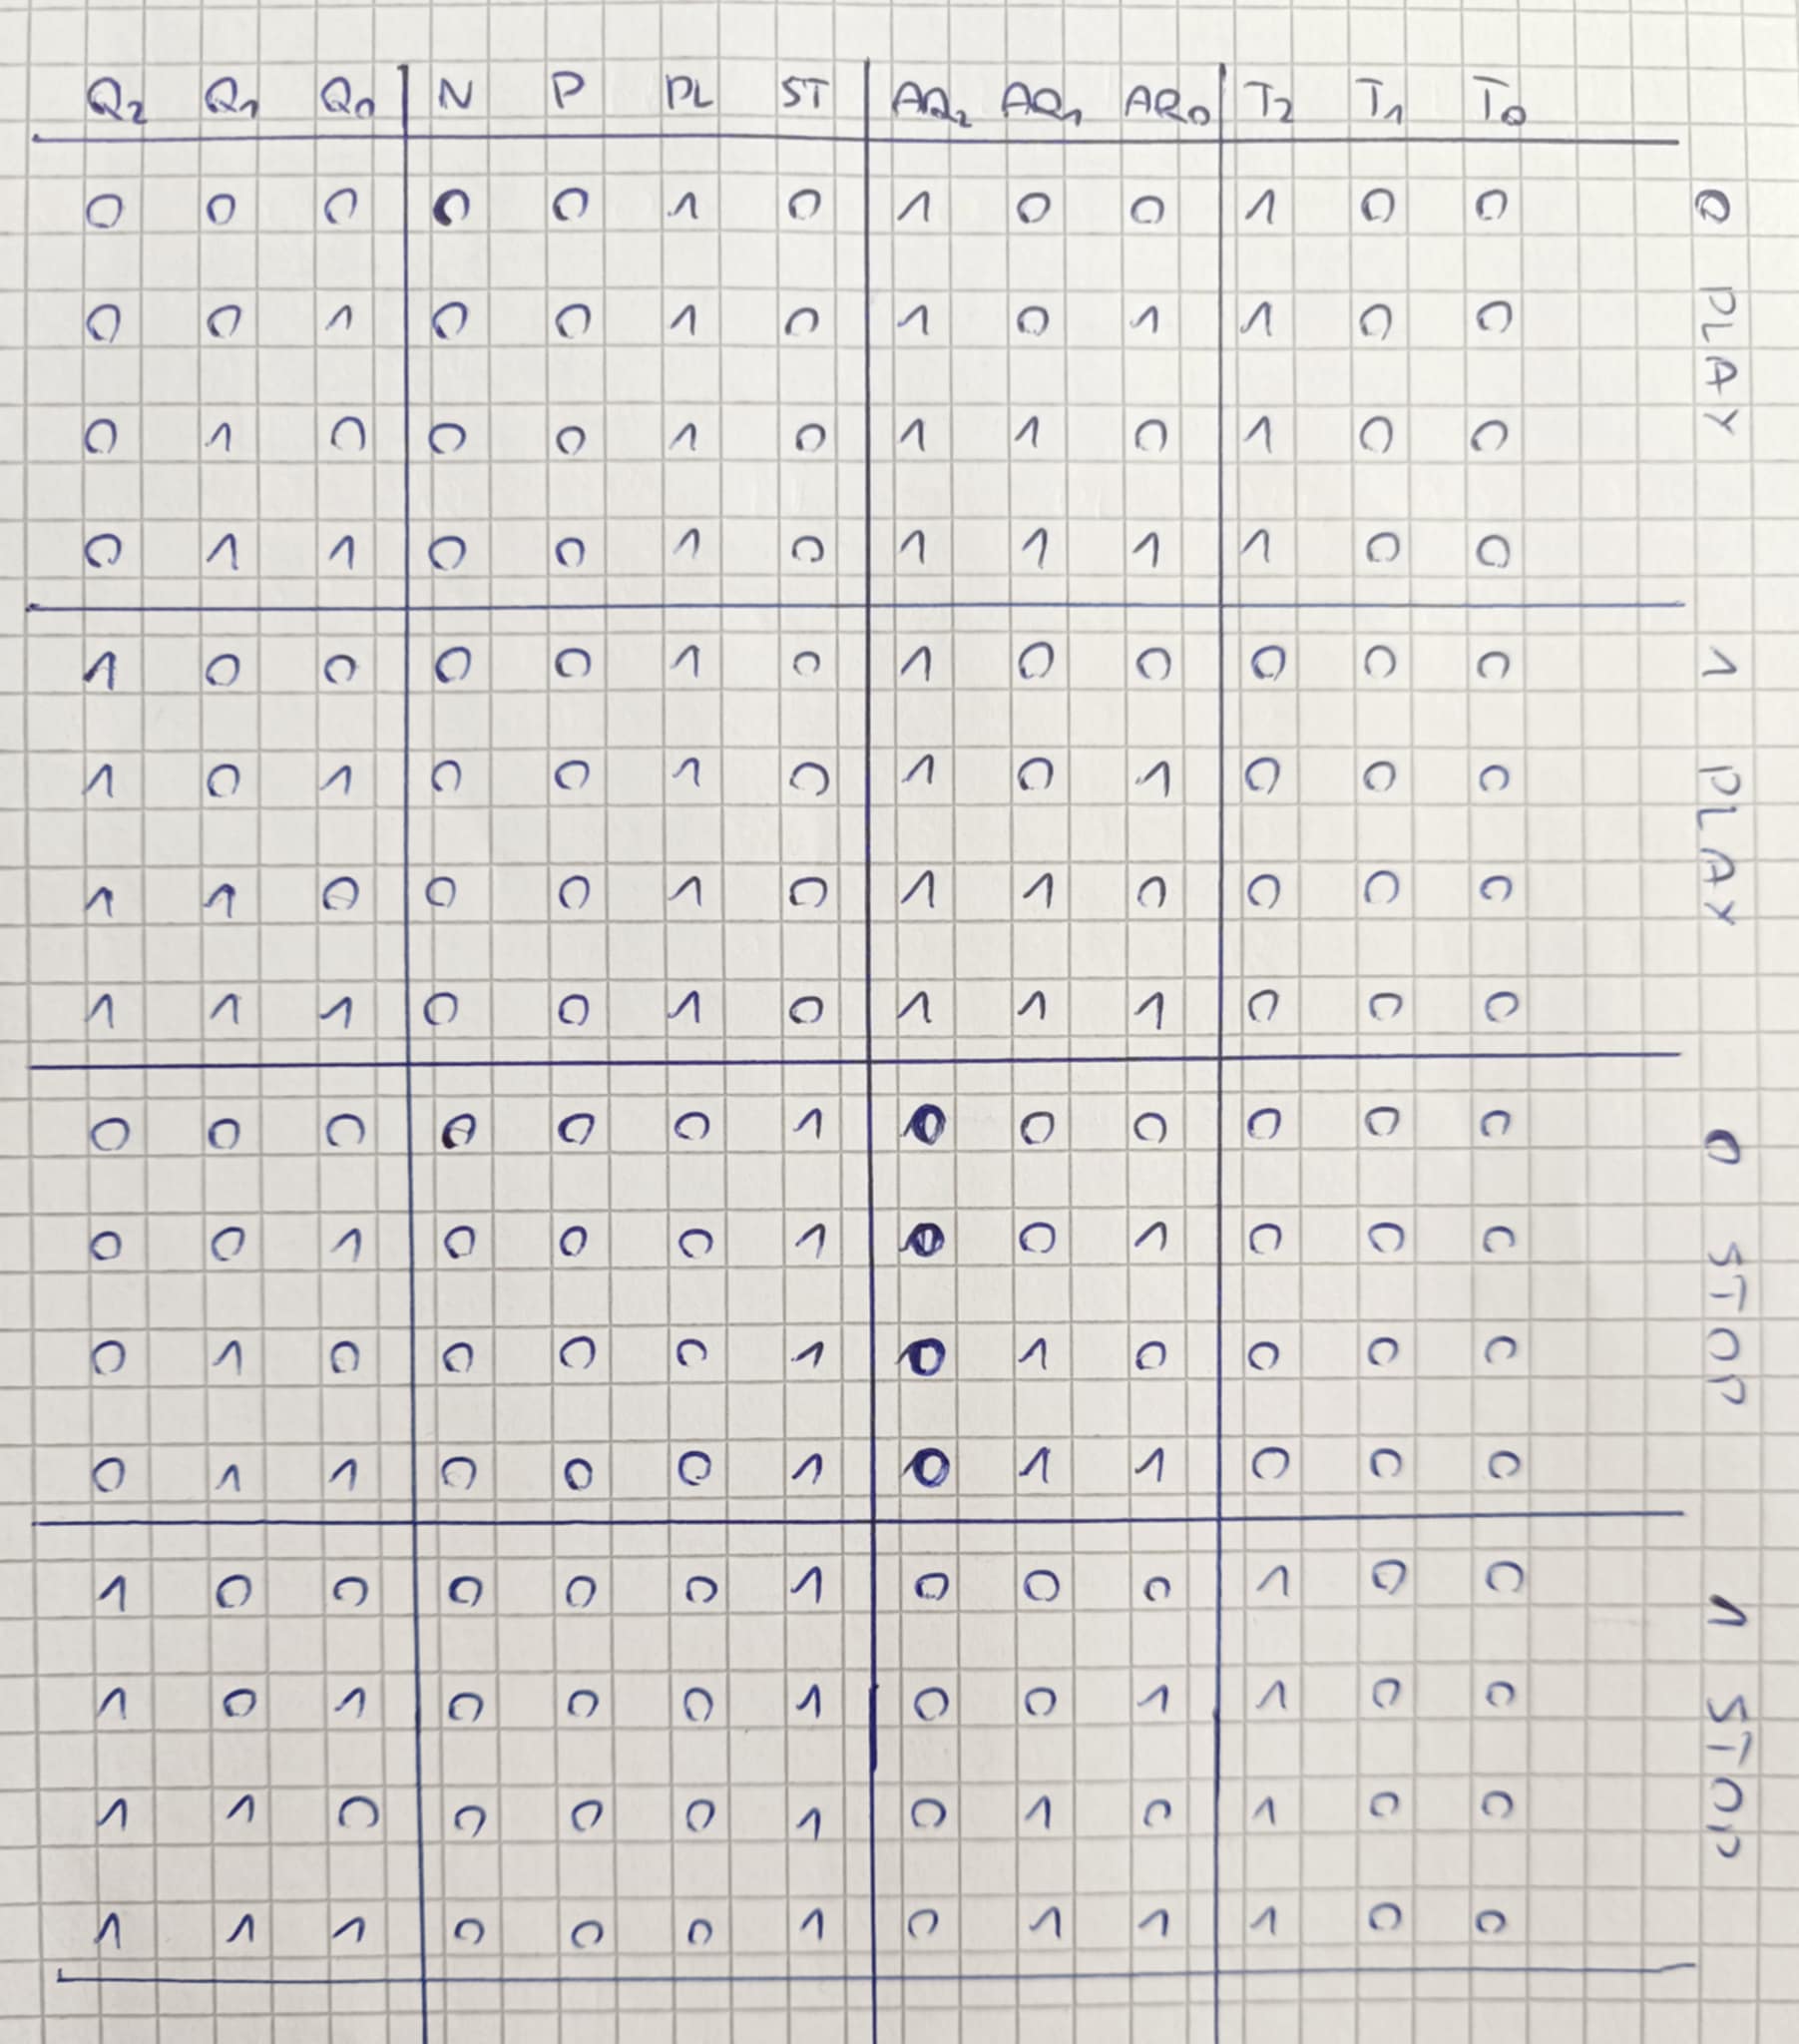 Q2 Q1 Q0 N P PL ST AQ2 AQ1 AQ0 T2 T1 T0
0 0 0 0 0 1 0 1 0 0 1 0 0
0 0 1 0 0 1 0 1 0 1 1 0 0
0 1 0 0 0 1 0 1 1 0 1 0 0
0 1 1 0 0 1 0 1 1 1 1 0 0
0 PLAY
1 0 0 0 0 1 0 1 0 0 0 0 0
1 0 1 0 0 1 0 1 0 1 0 0 0
1 1 0 0 0 1 0 1 1 0 0 0 0
1 1 1 0 0 1 0 1 1 1 0 0 0
1 PLAY
0 0 0 0 0 0 1 0 0 0 0 0 0
0 0 1 0 0 0 1 0 0 1 0 0 0
0 1 0 0 0 0 1 0 1 0 0 0 0
0 1 1 0 0 0 1 0 1 1 0 0 0
0 STOP
1 0 0 0 0 0 1 0 0 0 1 0 0
1 0 1 0 0 0 1 0 0 1 1 0 0
1 1 0 0 0 0 1 0 1 0 1 0 0
1 1 1 0 0 0 1 0 1 1 1 0 0
1 STOP